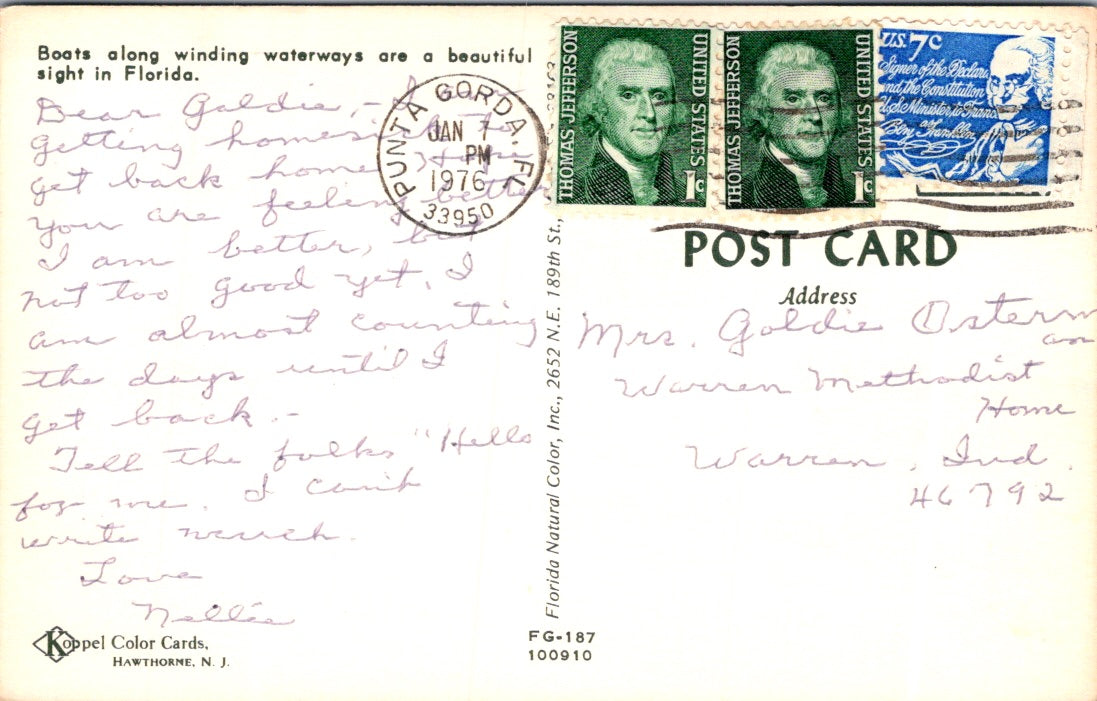 Boats along winding waterways are a beautiful
sight in Florida.
Dear Goldie, -
getting homesick to
get back home, Hope
You are feeling better
I am better, but
not too good yet. I
am almost counting
the days until I
get back. -
Tell the folks "Hello
for me. I can't
write much.
Love
Nellie
Koppel Color Cards,
HAWTHORNE, N. J.
PUNTA GORDA, FL
JAN 7
PM
1976
33950
Florida Natural Color, Inc., 2652 N.E. 189th St.,
FG-187
100910
THOMAS JEFFERSON
UNITED STATES
1c
THOMAS JEFFERSON
UNITED STATES
1c
U.S. 7c
Signer of the Declara
and the Constitution
U.S. Minister to France
Benj Franklin
POST CARD
Address
Mrs. Goldie Osterm
an
Warren Methodist
Home
Warren, Ind.
46792